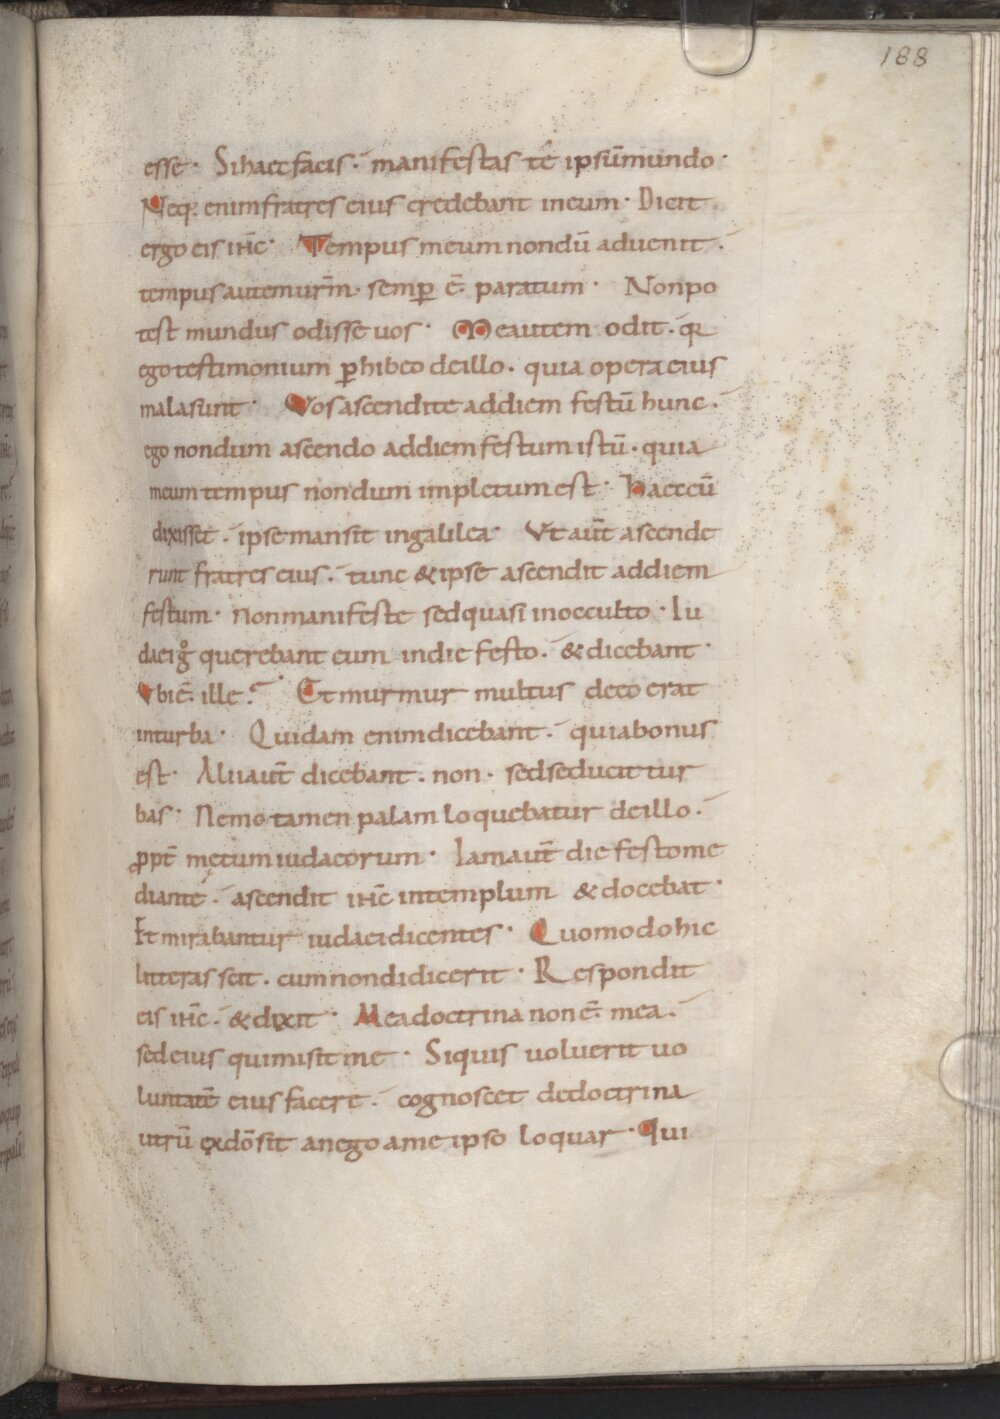 188
esse · Si haec facis · manifesta te ipsū mundo ·
Neq; enim fratres eius credebant in eum · Dicit
ergo eis ihc̄ · Tempus meum nondū aduenit ·
tempus autem ur̄m · semꝑ ē paratum · Non po
test mundus odisse uos · Me autem odit · qa
ego testimonium ꝑhibeo de illo · quia opera eius
mala sunt · Vos ascendite ad diem festū hunc ·
ego nondum ascendo ad diem festum istū · quia
meum tempus nondum impletum est · haec cū
dixisset · ipse mansit in galilea · Vt aut̄ ascende
runt fratres eius · tunc & ipse ascendit ad diem
festum · non manifeste sed quasi in occulto · Iu
daei g̊ querebant eum in die festo · & dicebant ·
Vbi ē ille ? Et murmur multus de eo erat
in turba · Quidam enim dicebant · quia bonus
est · Alii aut̄ dicebant · non · sed seducit tur
bas · Nemo tamen palam loquebatur de illo ·
ꝓpt̄ metum iudaeorum · Iam aut̄ die festo me
diante · ascendit ihc̄ in templum & docebat ·
Et mirabantur iudaei dicentes · Quomodo hic
litteras scit · cum non didicerit · Respondit
eis ihc̄ · & dixit · Mea doctrina non ē mea ·
sed eius qui misit me · Si quis uoluerit uo
luntatē eius facere · cognoscet de doctrina
utrū ex dō sit an ego a me ipso loquar · Qui